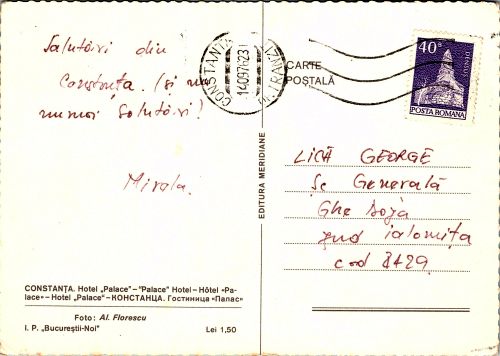 Salutări din
Constanța. (și nu
numai salutări)!
Mirela.
CONSTANȚA. Hotel „Palace" – "Palace" Hotel – Hôtel «Pa-
lace» – Hotel „Palace" – КОНСТАНЦА. Гостиница «Палас»
Foto: Al. Florescu
I. P. „Bucureștii-Noi" Lei 1,50
EDITURA MERIDIANE
CONSTANȚA
14097623
CARTE
POȘTALĂ
40
POSTA ROMANA
LICĂ GEORGE
Șc Generală
Ghe Doja
jud ialomița
cod 8429